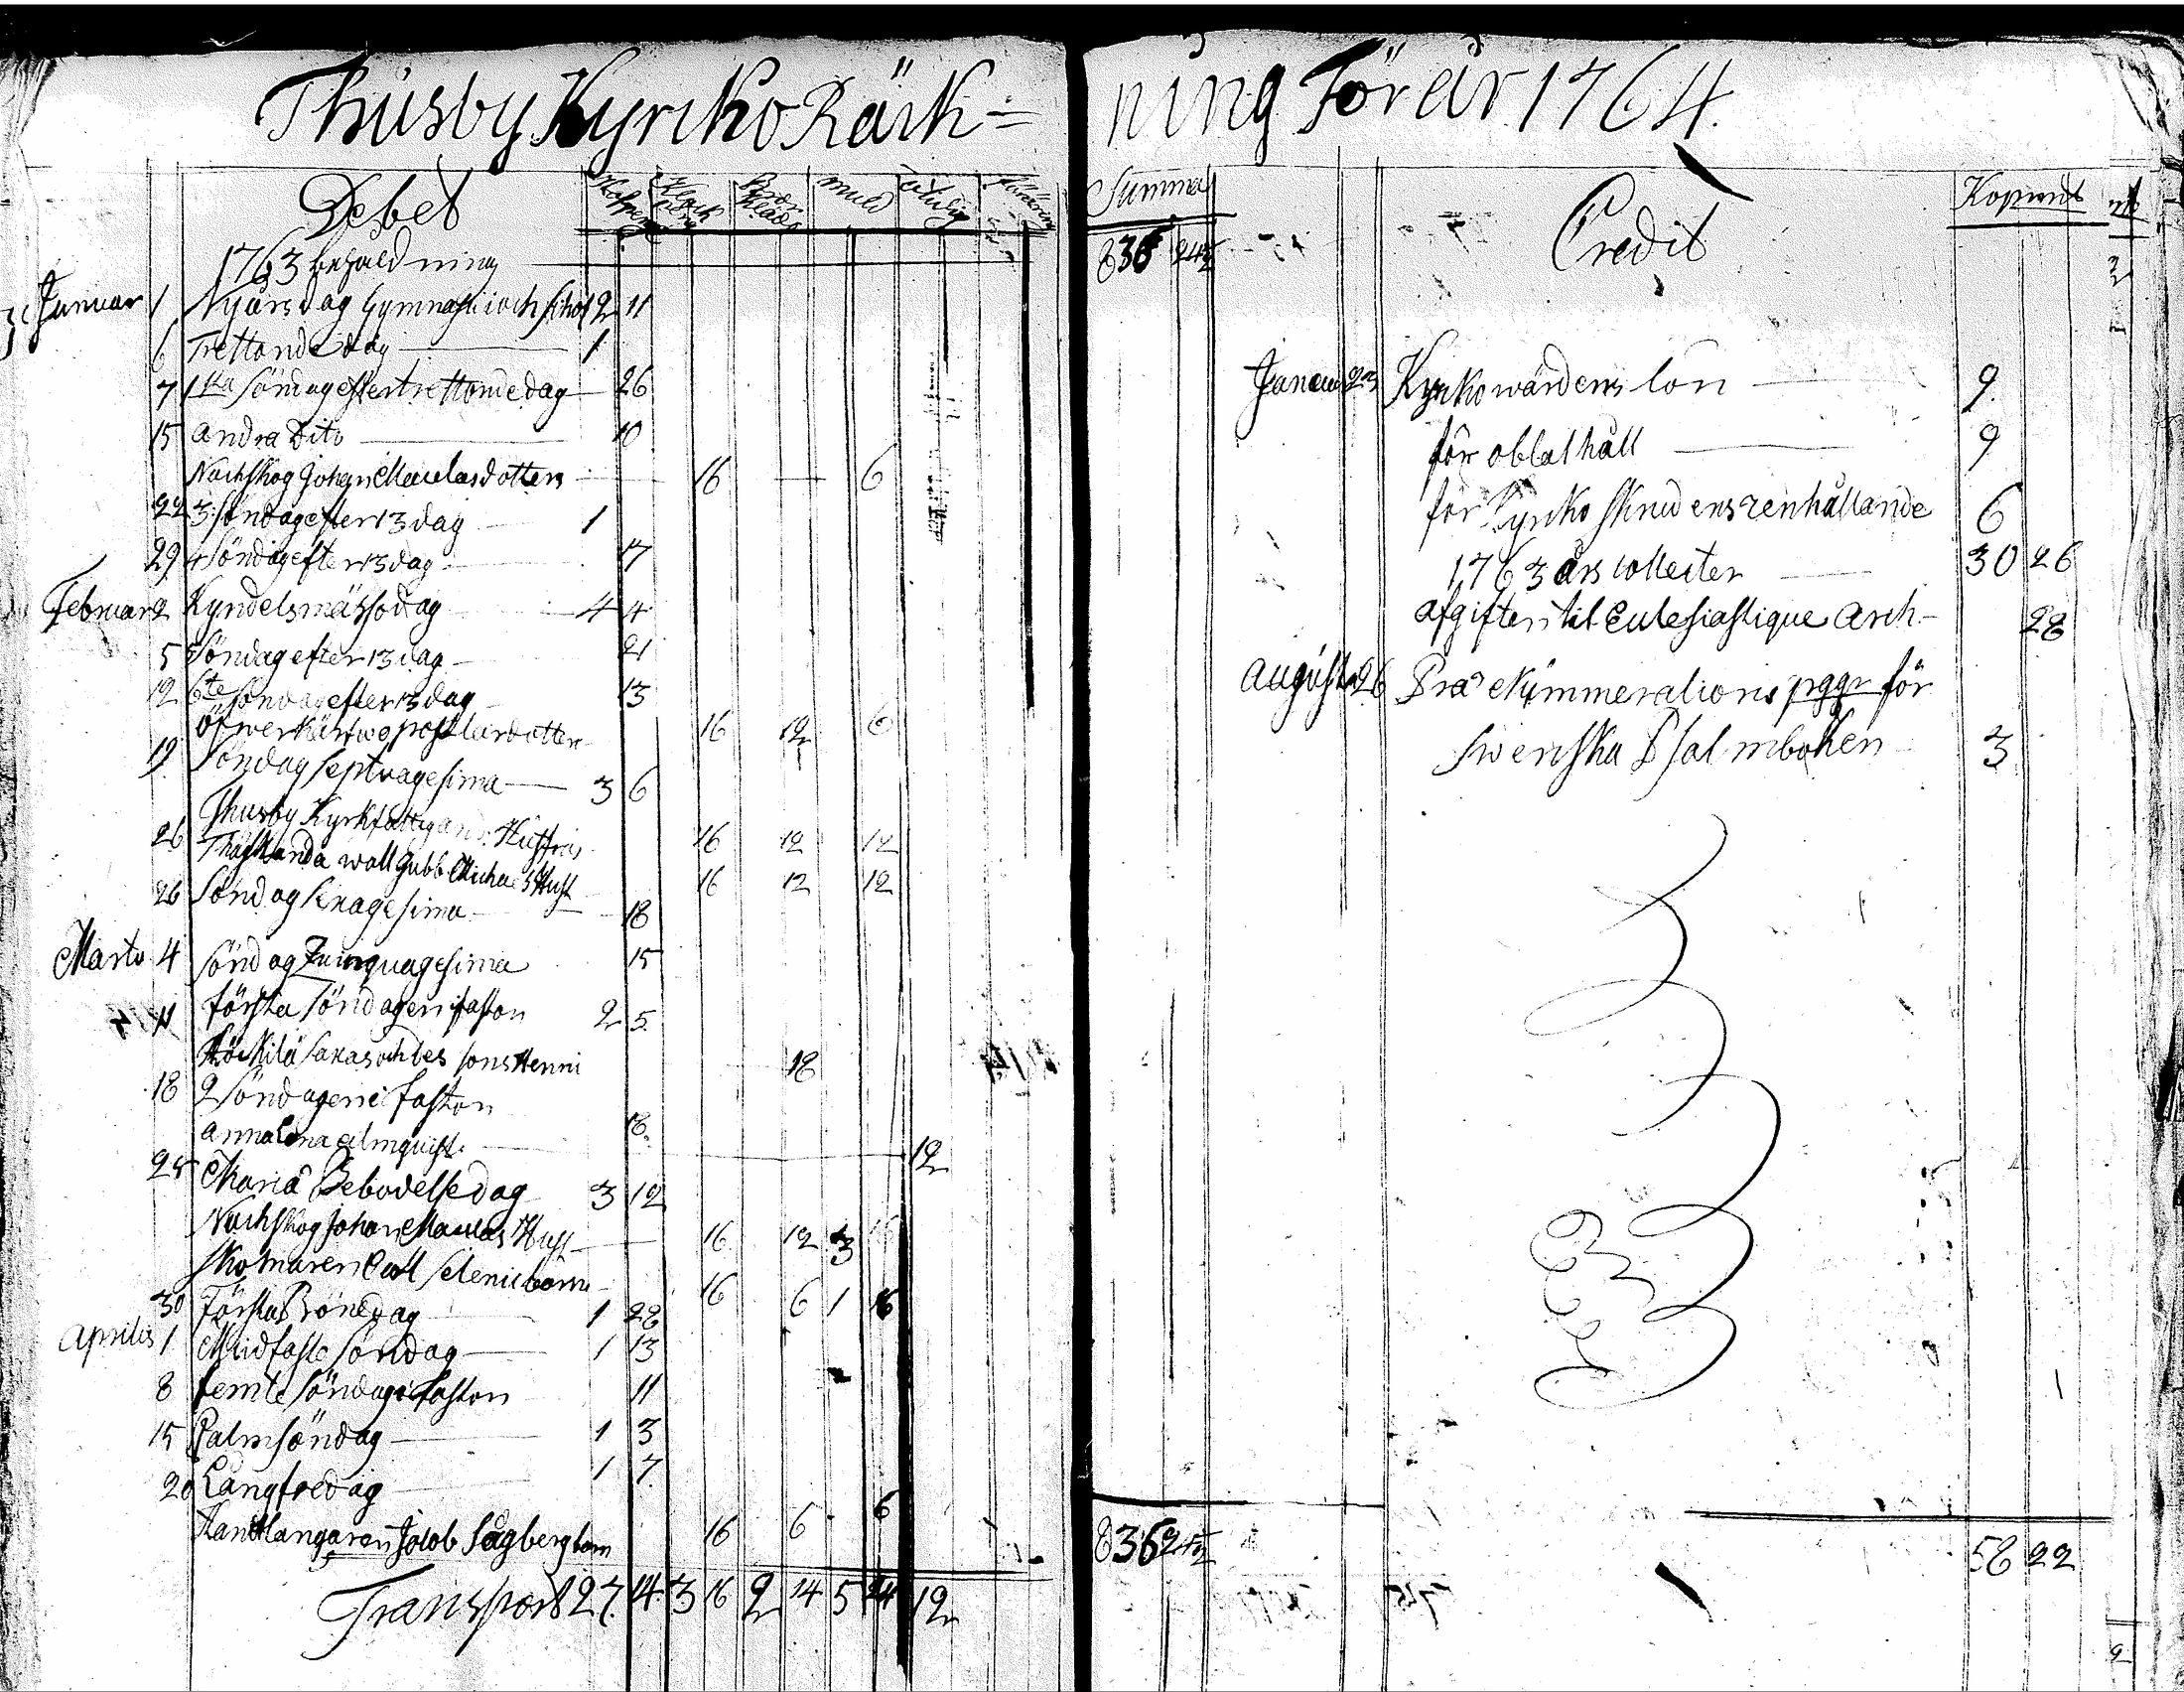 Thusby Kyrcko Räck=
Debet
muld
1763 behåldning
Januar 1 Nyårsdag Gymnasii och schol 2 11
6 Trettonde dag 1
7 1sta söndag efter trettonde dag 26
15 andra Dito 10
Nackskog Johan Maulas dotter 16 6
22 3 söndag efter 13 dag 1
29 4 söndag efter 13 dag 17
Februar 2 Kyndelsmässodag 4 4
5 5 Söndag efter 13 dag 21
12 6te söndag efter 13 dag 13
16 12 6
19 Söndag septuagesima 3 6
Thusby Kyrkfattig And: Hustru 16 12 12
26 wall Gubb Michels Hust 16 12 12
26 Söndag sexagesima 18
Marto 4 söndag Quinquagesima 15
11 första söndagen i faston 2 5
sakas och des sons Henni 18
18 2 söndagen i faston 18
anna Lena almquist 12
25 Mariä Bebodelsedag 3 12
Nackskog Johan Maulas Hust 16 12 3 16
skomaren Carl seleni barn 16 6 1 16
30 Första Bönedag 1 28
Aprilis 1 Midfasto söndag 1 13
8 femte söndag i faston 11
15 Palmsöndag 1 3
20 Långfredag 1 7
Handlangaren Jacob Sågberg barn 16 6 6
Transport 27 14 3 16 2 14 5 24 12
ning För år 1764.
Summa
Credit
Kopmnt
836 24½
Januar 23 Kyrkowärdens lön 9
för oblat håll 9
för Kyrko skrudens renhållande 6
1763 års collecter 30 26
afgiften til Eclesiastique Arch- 28
Augusti 26 Præ Nummerations pggr för
swenska Psalmboken 3
836 24½
58 22